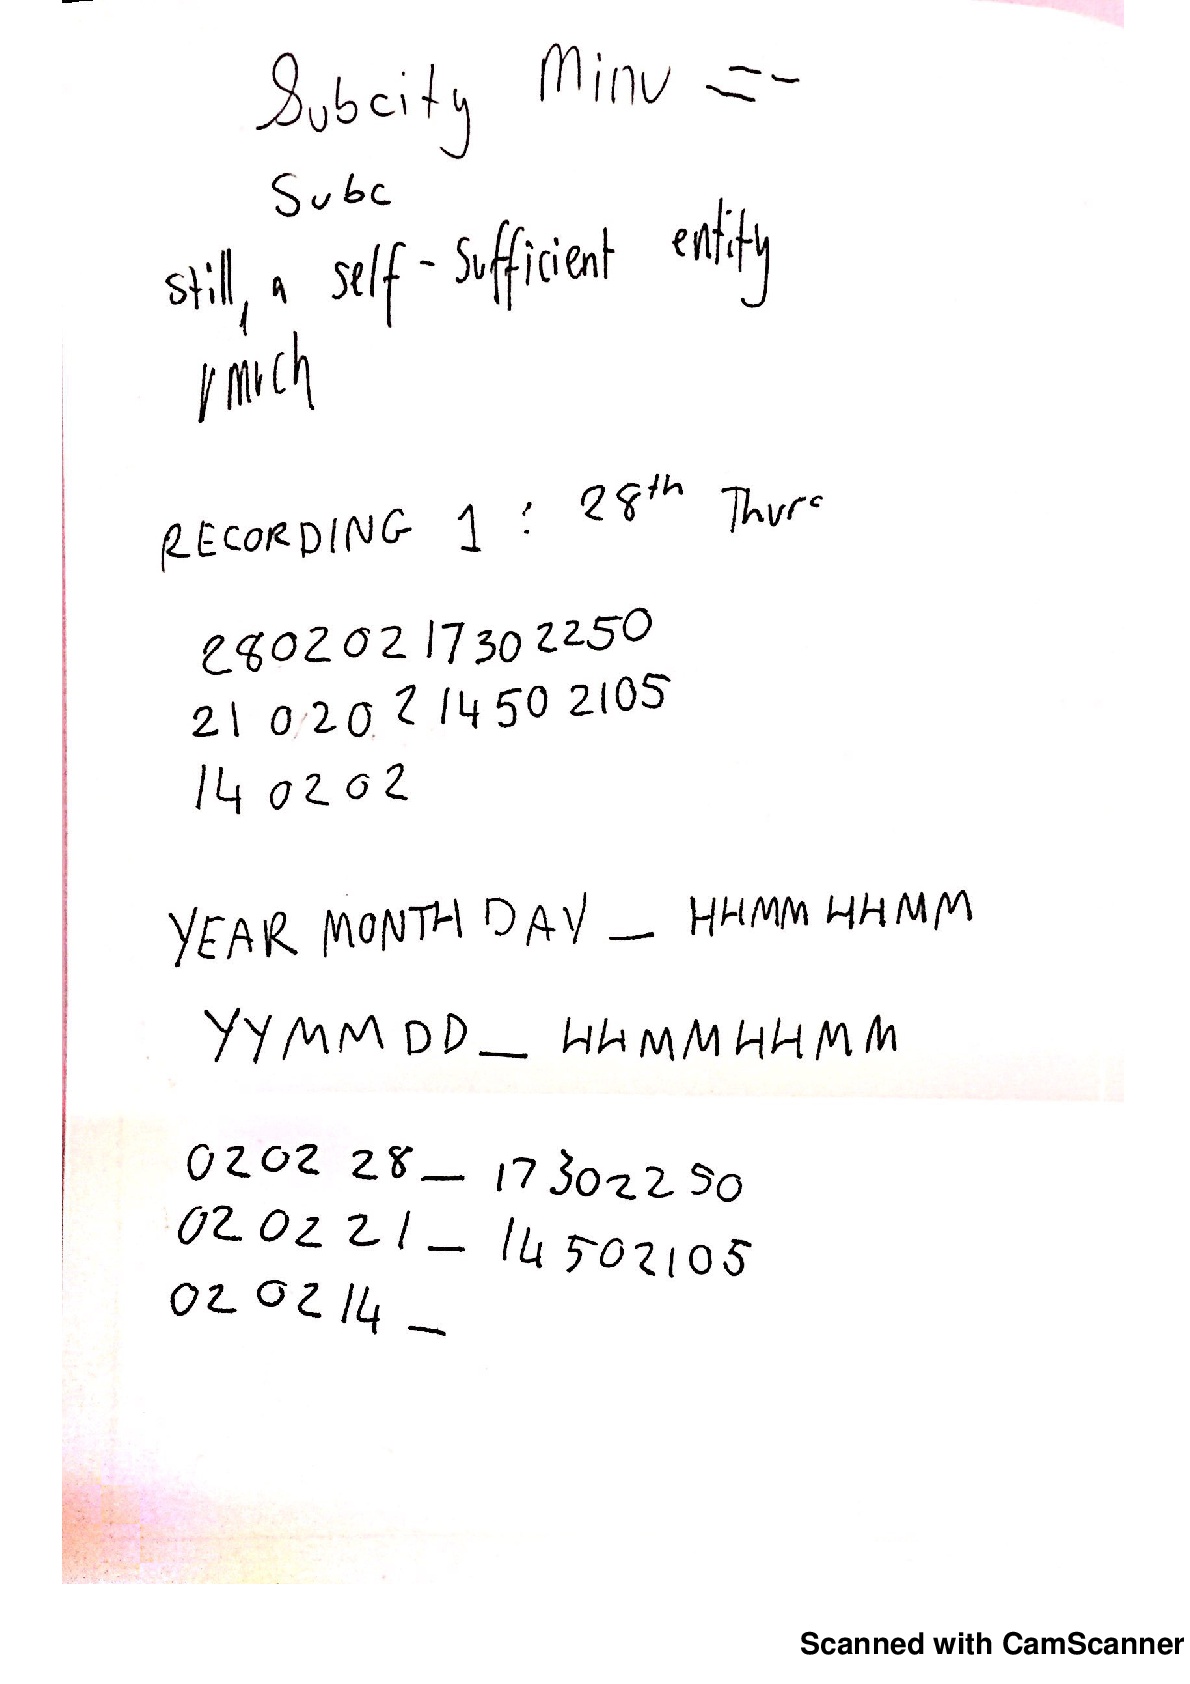 Subcity Minu =-
Subc
still, a self-sufficient entity
much
RECORDING 1 : 28th Thurs
28020217302250
21020214502105
140202
YEAR MONTH DAY _ HHMMHHMM
YYMMDD_ HHMMHHMM
020228_ 17302250
020221_ 14502105
020214_
Scanned with CamScanner